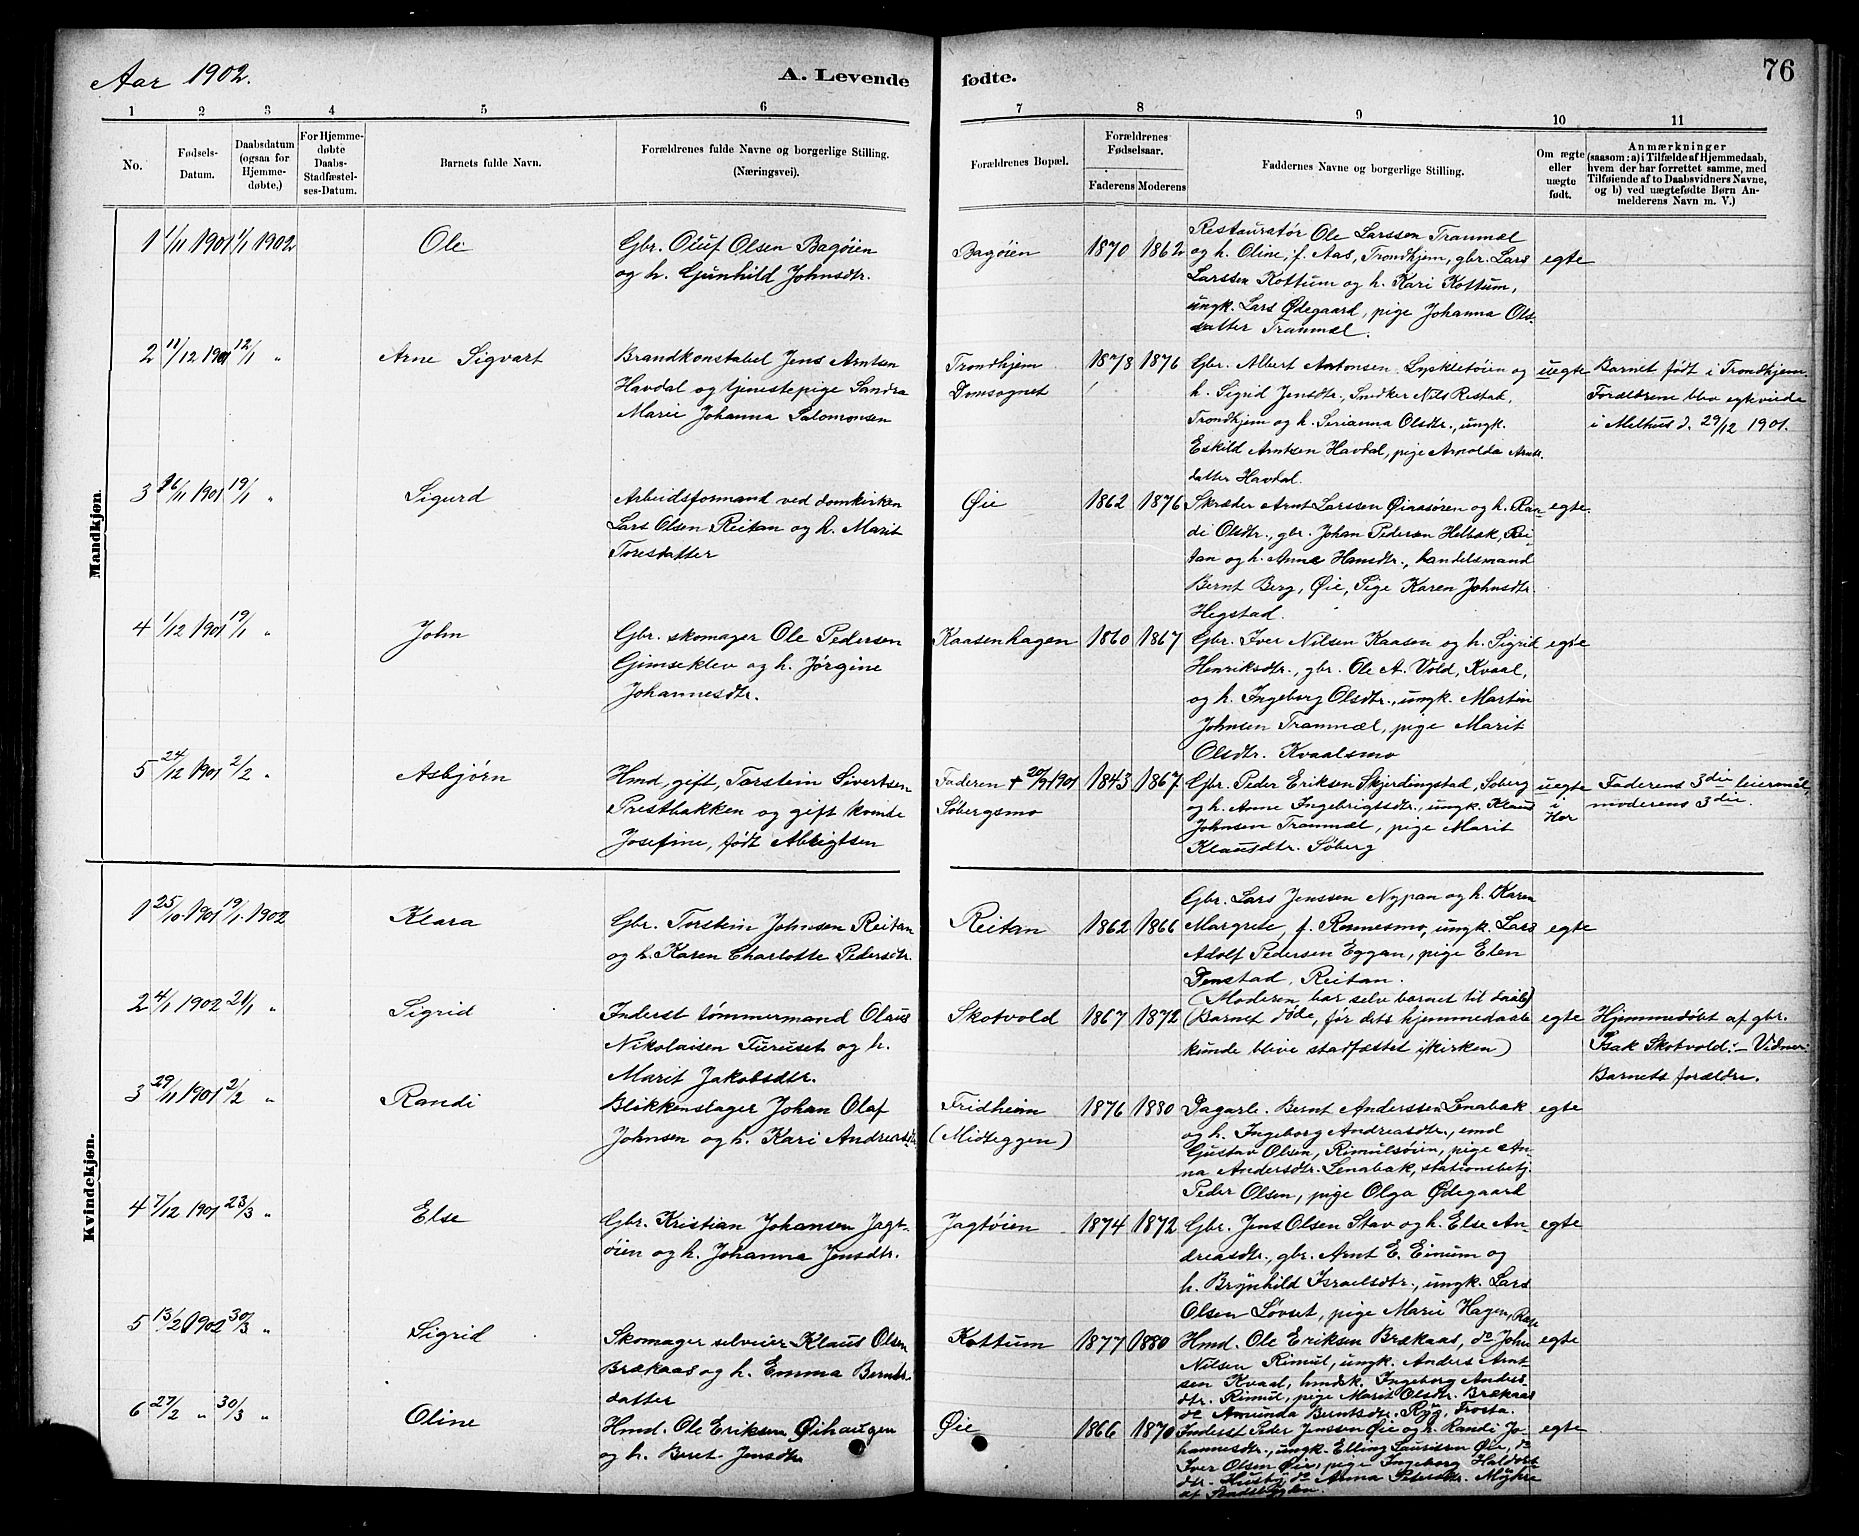 Aar 1902.
A. Levende
fødte.
76
1 2 3 4 5 6 7 8 9 10 11
No.
Fødsels-
Datum.
Daabsdatum
(ogsaa for
Hjemme-
døbte.)
For Hjemme-
døbte
Daabs-
Stadfæstel-
ses-Datum.
Barnets fulde Navn.
Forældrenes fulde Navne og borgerlige Stilling.
(Næringsvei).
Forældrenes Bopæl.
Forældrenes
Fødselsaar.
Faderens Moderens
Faddernes Navne og borgerlige Stilling.
Om ægte
eller
uægte
født.
Anmærkninger
(saasom: a) i Tilfælde af Hjemmedaab,
hvem der har forrettet samme, med
Tilføiende af to Daabsvidners Navne,
og b) ved uægtefødte Børn An-
melderens Navn m. V.)
Mandkjøn.
1 1/11 1901 1/1 1902
Ole
Gbr. Oluf Olsen Bagøien
og h. Gunhild Johnsdtr.
Bagøien
1870 1862
Restauratør Ole Larssen Tranmæl
og h. Oline, f. Aas, Trondhjem, gbr. Lars
Larssen Kottum og h. Kari Kottum,
ungk. Lars Ødegaard, pige Johanna Ols-
datter Tranmæl.
egte
2 11/12 1901 12/1 "
Arne Sigvart
Brandkonstabel Jens Arntsen
Havdal og tjenestepige Sandra
Marie Johanna Salomonsen
Trondhjem
Domsognet
1878 1876
Gbr. Albert Antonsen Lykletøien og
h. Sigrid Jensdtr., Snedker Nils Restad,
Trondhjem og h. Serianna Olsdtr., ungk.
Eskild Arntsen Havdal, pige Arnolda Arnts-
datter Havdal.
uegte
Barnet født i Trondhjem.
Forældrene blev egteviede
i Melhus d. 29/12 1901.
3 16/11 1901 19/1 "
Sigurd
Arbeidsformand ved domkirken
Lars Olsen Reitan og h. Marit
Toresdatter
Øie
1862 1876
Skræder Arnt Larssen Øiaasøren og h. Ran-
di Olsdtr., gbr. Johan Pedersen Helbak, Rei-
tan og h. Anne Hansdtr., handelsmand
Bernt Berg, Øie, Pige Karen Johnsdtr.
Hegstad.
egte.
4 1/12 1901 19/1 "
John
Gbr. skomager Ole Pedersen
Gimseklev og h. Jørgine
Johannesdtr.
Kaasenhagen
1860 1867
Gbr. Iver Nilsen Kaasen og h. Sigrid
Henriksdtr., gbr. Ole A. Vold, Kvaal,
og h. Ingeborg Olsdtr., ungk. Martin
Johnsen Tranmæl, pige Marit
Olsdtr. Kvaalsmo
egte
5 24/12 1901 2/2 "
Asbjørn
Hmd, gift, Torstein Sivertsen
Prestbakken og gift kvinde
Josefine, født Abrigtsen
Faderen + 20/9 1901
Søbergsmo
1843 1867
Gbr. Peder Eriksen Skjerdingstad, Søberg
og h. Anne Ingebrigtsdtr., ungk. Klaus
Johnsen Tranmæl, pige Marit
Klausdtr. Søberg
uegte
i
Hor
Faderens 3die leiermål,
moderens 3die.
Kvindekjøn.
1 25/10 1901 19/1 1902
Klara
Gbr. Torstein Johnsen Reitan
og h. Karen Charlotte Pedersdtr.
Reitan
1862 1866
Gbr. Lars Jenssen Nypan og h. Karen
Margrete, f. Rønnesmo, ungk. Lars
Adolf Pedersen Eggan, pige Elen
Denstad, Reitan.
(Moderen bar selv barnet til daab)
egte
2 4/1 1902 21/1 "
Sigrid
Inderst tømmermand Olaus
Nikolaisen Furuset og h.
Marit Jakobsdtr.
Skotvold
1867 1872
(Barnet døde, før dets hjemmedaab
kunde blive stadfæstet i kirken)
egte
Hjemmedøbt af gbr.
Isak Skotvold: - Vidner:
Barnets forældre.
3 29/11 1901 2/2 "
Randi
Blikkenslager Johan Olaf
Johnsen og h. Kari Andreasdtr.
Fridheim
(Midteggen)
1876 1880
Dagarb. Bernt Anderssen Lenabak
og h. Ingeborg Andreasdtr., smd
Gustav Olsen, Rimulsøien, pige An-
na Andersdtr. Lenabak, stationsbetj.
Peder Olsen, pige Olga Ødegaard
egte
4 7/12 1901 23/3 "
Else
Gbr. Kristian Johansen Jagt-
øien og h. Johanna Jensdtr.
Jagtøien
1874 1872
Gbr. Jens Olsen Stav og h. Else An-
dreasdtr., gbr. Arnt E. Einum og
h. Brynhild Israelsdtr., ungk. Lars
Olsen Løvset, pige Marie Hagen,
egte
5 13/2 1902 30/3 "
Sigrid
Skomager selveier Klaus Olsen
Brækaas og h. Emma Bernts-
datter
Kottum
1877 1880
Hmd. Ole Eriksen Brækaas, do John
Nilsen Rimul, ungk. Anders Arnt-
sen Kvaal, hmdsk. Ingeborg Anders-
dtr. Rimul, pige Marit Olsdtr. Brækaas
do Amunda Berntsdtr. Ryg, Frosta.
egte
6 27/2 " 30/3 "
Oline
Hmd. Ole Eriksen Øihaugen
og h. Beret Jensdtr
Øie
1866 1870
Inderst Peder Jenssen Øie og h. Randi Jo-
hannesdtr., ungk. Elling Lauritsen Øie, do
Iver Olsen Øie, pige Ingeborg Haldors-
dtr. Husby, do Anna Petersdtr. Myhre
af
egte